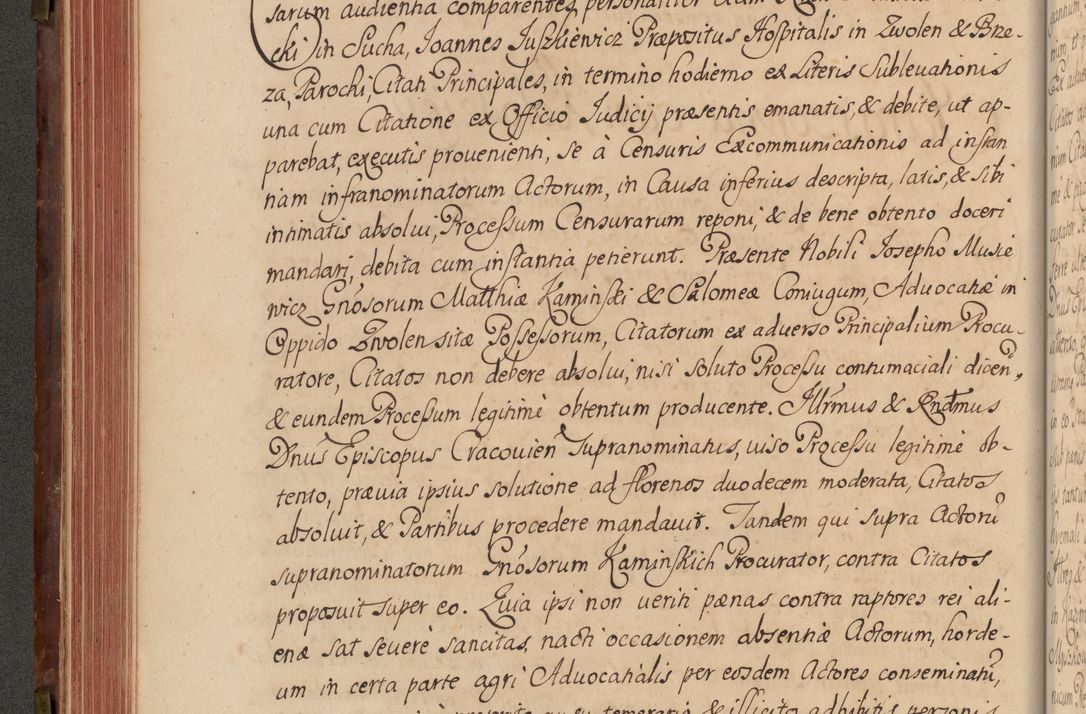 sarum audientia comparentes personaliter
cki in Sucha, Joannes Juszkiewicz Præpositus Hospitalis in Zwolen & Brze-
za, Parochi, Citati Principales, in termino hodierno ex Literis Sublevationis
una cum Citatione ex Officio Judicij præsentis emanatis, & debite, ut ap-
parebat, executis provenienti, se à Censuris Excommunicationis ad instan
tiam infranominatorum Actorum, in Causa inferius descripta, latis, & sibi
intimatis absolui, Processum Censurarum reponi, & de bene obtento doceri
mandari, debita cum instantia petierunt. Præsente Nobili Josepho Musie
wicz Gnosorum Matthiæ Kaminski & Salomeæ Coniugum, Advocatiæ in
Oppido Zwolen sitæ Possessorum, Citatorum ex adverso Principalium Procu-
ratore, Citatos non debere absolui, nisi soluto Processu contumaciali dicen,
& eundem Processum legitimè obtentum producente. Illrmus & Rndmus
Dnus Episcopus Cracovien supranominatus, viso Processu legitimè ob-
tento, prævia ipsius solutione ad florenos duodecem moderata, Citatos
absoluit, & Partibus procedere mandauit. Tandem qui supra Actorũ
supranominatorum Gnosorum Kaminskich Procurator, contra Citatos
proposuit super eo. Quia ipsi non veriti pænas contra raptores rei ali-
enæ sat severè sancitas, nacti occasionem absentiæ Actorum, horde-
um in certa parte agri Advocatialis per eosdem Actores conseminatũ,
temerario & illicito adhibitis personis